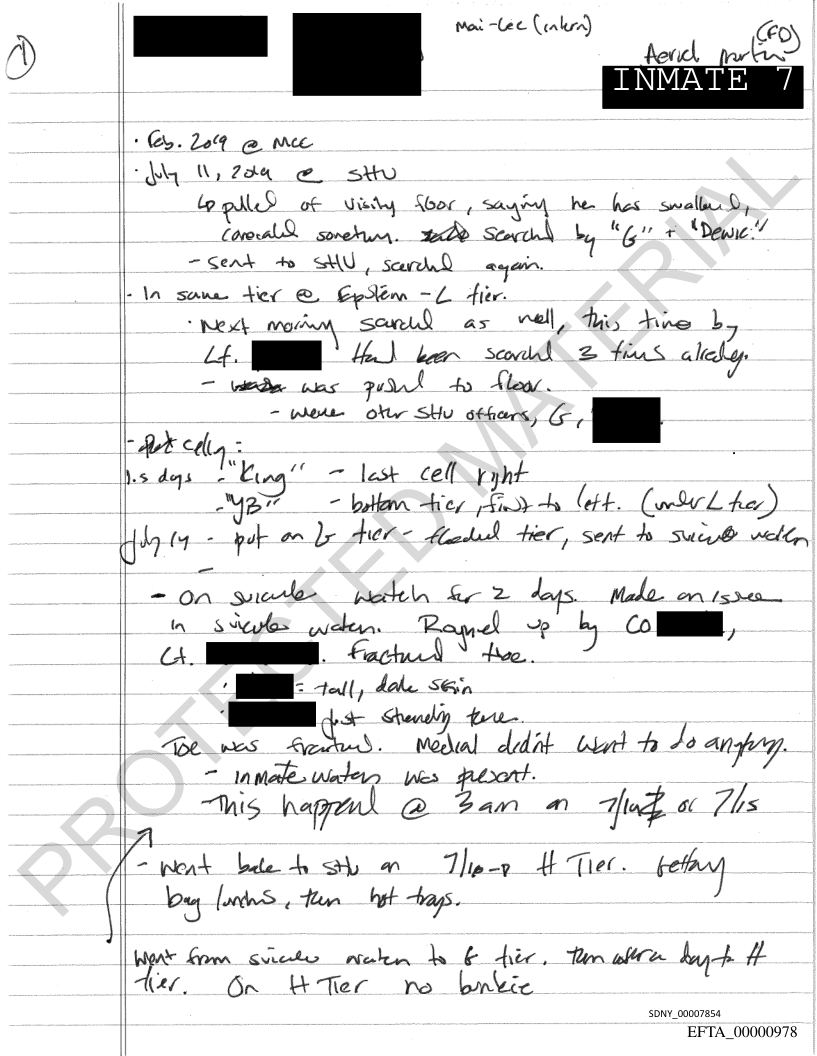 1
Mai-Lee (intern)
(FD)
Aerial
INMATE 7
· Feb. 2019 @ MCC
· July 11, 2019 @ SHU
pulled of visiting floor, saying he has swallowed,
concealed something. searched by "G" +
- sent to SHU, searched again.
- In same tier @ Epstein - L tier.
· Next morning searched as well, this time by
Lt. Had been searched 3 times already.
- was pushed to floor.
- were other SHU officers, G,
- Past cells =
1.5 days - "King" - last cell right
- "YB" - bottom tier, first to left. (under L tier)
July 14 - put on G tier - flooded tier, sent to suicide watch
-
- On suicide watch for 2 days. Made an issue
in suicide watch. up by CO ,
Lt. . Fractured toe.
· = tall, dark skin
· just standing there.
Toe was fractured. Medical didn't want to do anything.
- inmate watcher was present.
- This happened @ 3 am on or 7/15
- Went back to SHU on H Tier. Getting
bag lunches, then hot trays.
Went from suicide watch to G tier. Then after a day to H
Tier. On H Tier no bunkie
PROTECTED MATERIAL
SDNY_00007854
EFTA_00000978